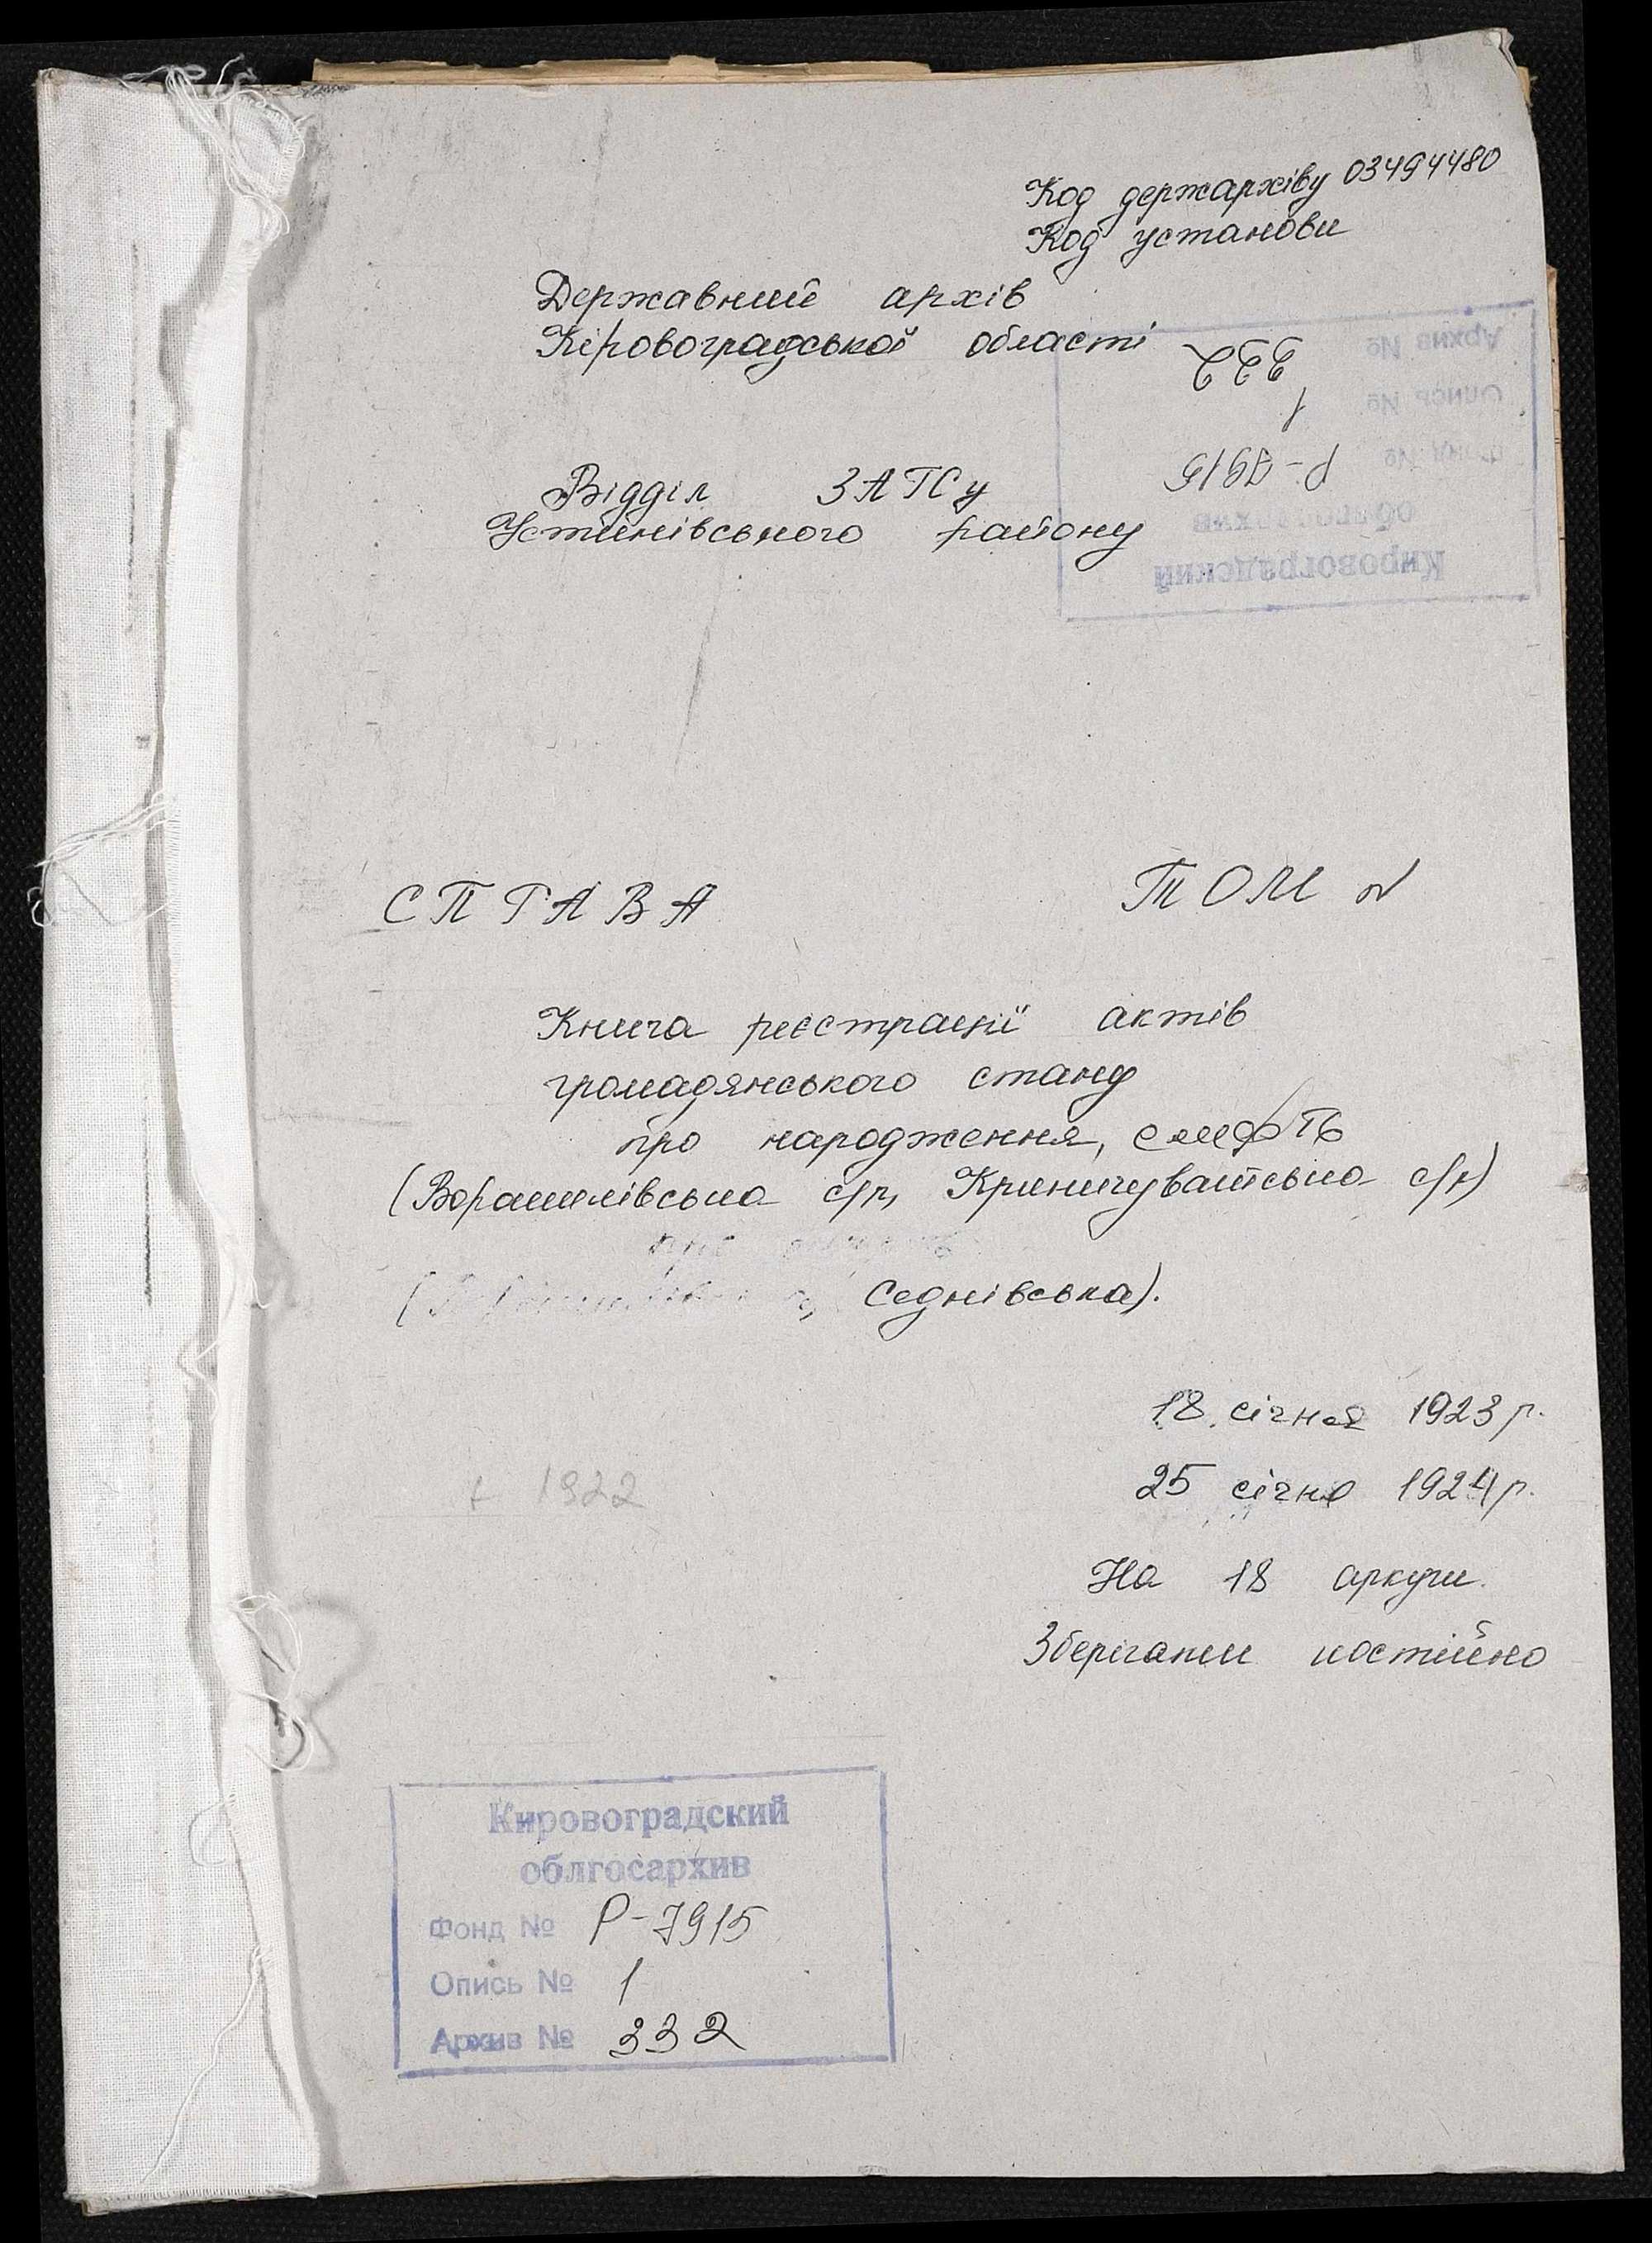 Код держархіву 03494480
Код установи
Державний архів
Кіровоградської області
Архив № 332
Опись № 1
Фонд № Р-7915
облгосархив
Кировоградский
Відділ ЗАГСу
Устинівського району
СПРАВА ТОМ №
Книга реєстрації актів
громадянського стану
про народження, смерть
(Ворошилівська с/р, Криничуватська с/р)
про смерть
Седнівська).
18 січня 1923 р.
25 січня 1924 р.
+ 1922
На 18 аркуш.
Зберігати постійно
Кировоградский
облгосархив
Фонд № Р-7915
Опись № 1
Архив № 332